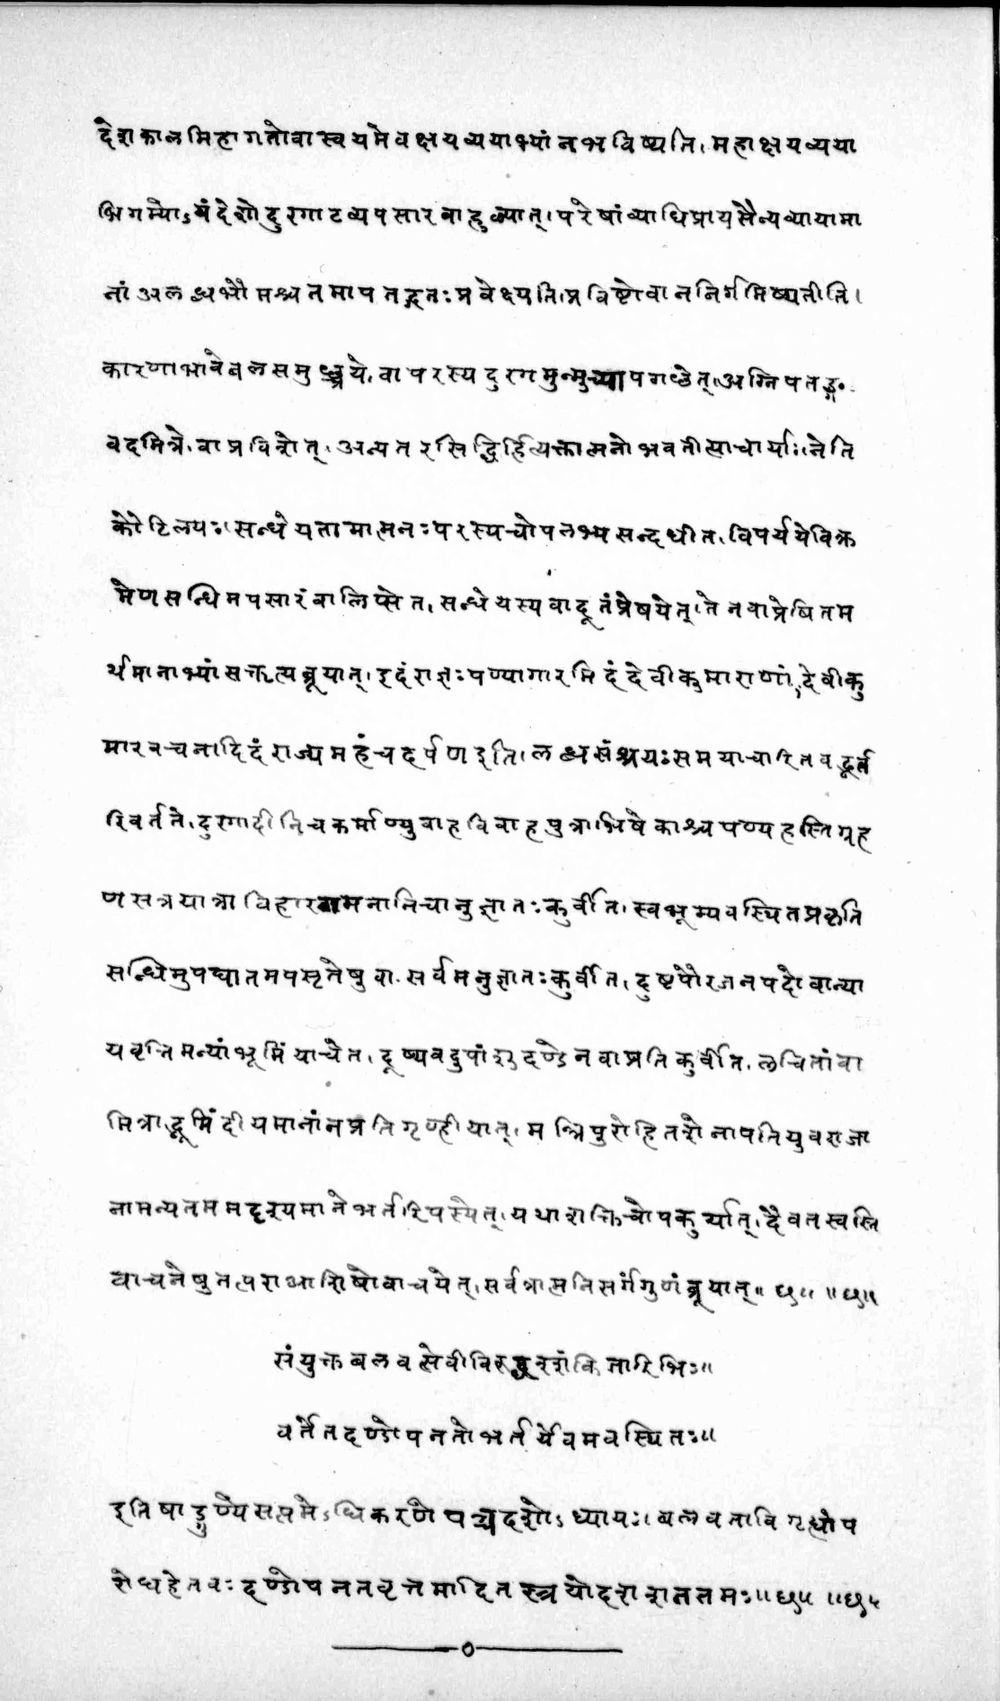 देशकालमिहागतोवास्वयमेवक्षयव्ययाभ्यांनभविष्यति। महाक्षयव्यया
भिगम्योऽयंदेशोदुरगाटव्यपसारबाहुल्यात्। परेषांव्याधिप्रायसैन्यव्यायामा
नांअलब्धभौमश्चतमापतद्गतःप्रवेक्ष्यति।प्रविष्टोवाननिर्गमिष्यतीति।
कारणाभावेबलसमुछ्र्ये।वापरस्यदुरगमुन्मुच्यापगछेत्।अग्निपतङ्ग.
वदमित्रे।वाप्रविशेत्।अन्यतरसिद्धिर्हित्यक्तात्मनोभवतीत्याचार्याः।नेति
कौटिलयः।सन्धेयतामात्मनःपरस्यचोपलभ्यसन्दधीत।विपर्ययेविक्र
मेणसन्धिमपसारंवालिप्सेत।सन्धेयस्यवादूतंप्रेषयेत्।तेनवाप्रेषितम
र्थमानाभ्यांसत्कृत्यब्रूयात्।इदंराज्ञःपण्यागारमिदंदेवीकुमाराणां,देवीकु
मारवचनादिदंराज्यमहंचदर्पणइति।लब्धसंश्रयःसमयाचारितवद्भर्त
रिवर्तते।दुरगादीनिचकर्माण्युवाहविवाहपुत्राभिषेकाश्वपण्यहस्तिग्रह
णसत्रयात्राविहारगमनानिचानुज्ञातःकुर्वीत।स्वभूम्यवस्थितप्रकृति
सन्धिमुपघातमपसृतेषुवा.सर्वमनुज्ञातःकुर्वीत।दुष्टपौरजनपदोवान्या
यवृत्तिमन्यांभूमिंयाचेत।दूष्यवदुपांशुदण्डेनवाप्रतिकुर्वीत.लचितांवा
मित्राद्भूमिंदीयमानांनप्रतिगृण्हीयात्।मन्त्रिपुरोहितशेनापतियुवराजा
नामन्यतममदृश्यमानेभर्तरिपस्येत्।यथाशक्तिचोपकुर्यात्।दैवतस्वस्ति
वाचनेषुतत्पराआशिषोवाचयेत्।सर्वत्रात्मनिसर्गंगुणंब्रूयात्॥ छ॥ ॥छ॥
संयुक्तबलवत्सेवीविरुद्धश्शंकितारिभिः॥
वर्तेतदण्डोपनतोभर्तर्येवमवस्थितः॥
इतिषाड्गुण्येसप्तमेऽधिकरणेपञ्चदशोऽध्यायः।बलवताविगृह्योप
रोधहेतवःदण्डोपनतवृत्तमादितस्त्रयोदशशततमः॥छ॥ ॥छ॥